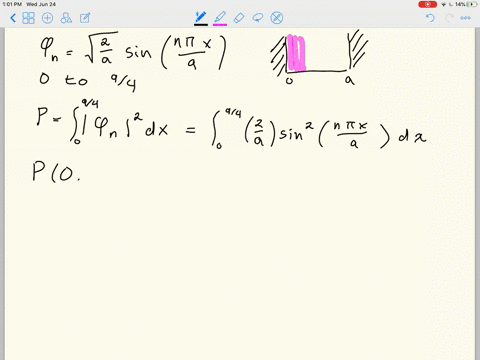 1:01 PM Wed Jun 24
14%
φₙ = √(2/a) sin (nπx/a)
0 to a/4
0 a
P = ∫₀^(a/4) |φₙ|² dx = ∫₀^(a/4) (2/a) sin² (nπx/a) dx
P(0.